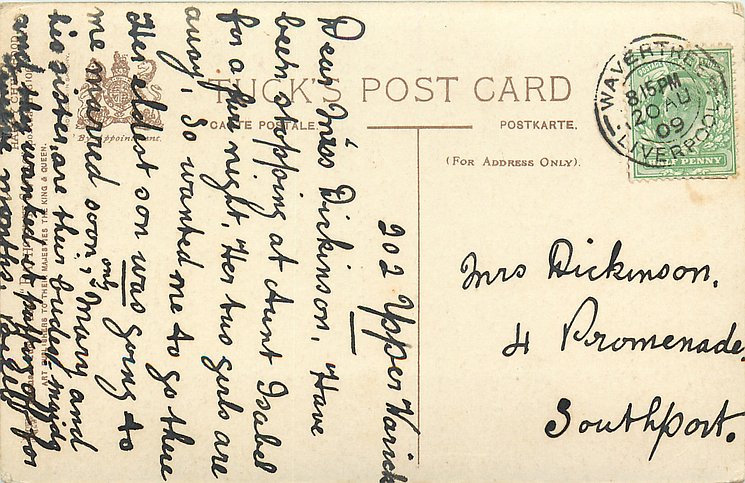 TUCK'S POST CARD
CARTE POSTALE.
POSTKARTE.
(FOR ADDRESS ONLY).
By Appointment.
ART PUBLISHERS TO THEIR MAJESTIES THE KING & QUEEN.
WAVERTREE
8.15 PM
20 AU
09
LIVERPOOL
HALF PENNY
Mrs Dickinson.
4 Promenade
Southport.
202 Upper Warick
Dear Miss Dickinson. Have
been stopping at Aunt Isabel
for a few night. Her two girls are
away. So wanted me to go there
Her eldest son was going to
me married soon, only Mary and
his sister are their bridesmaids
and they wanted it putting off for
months.